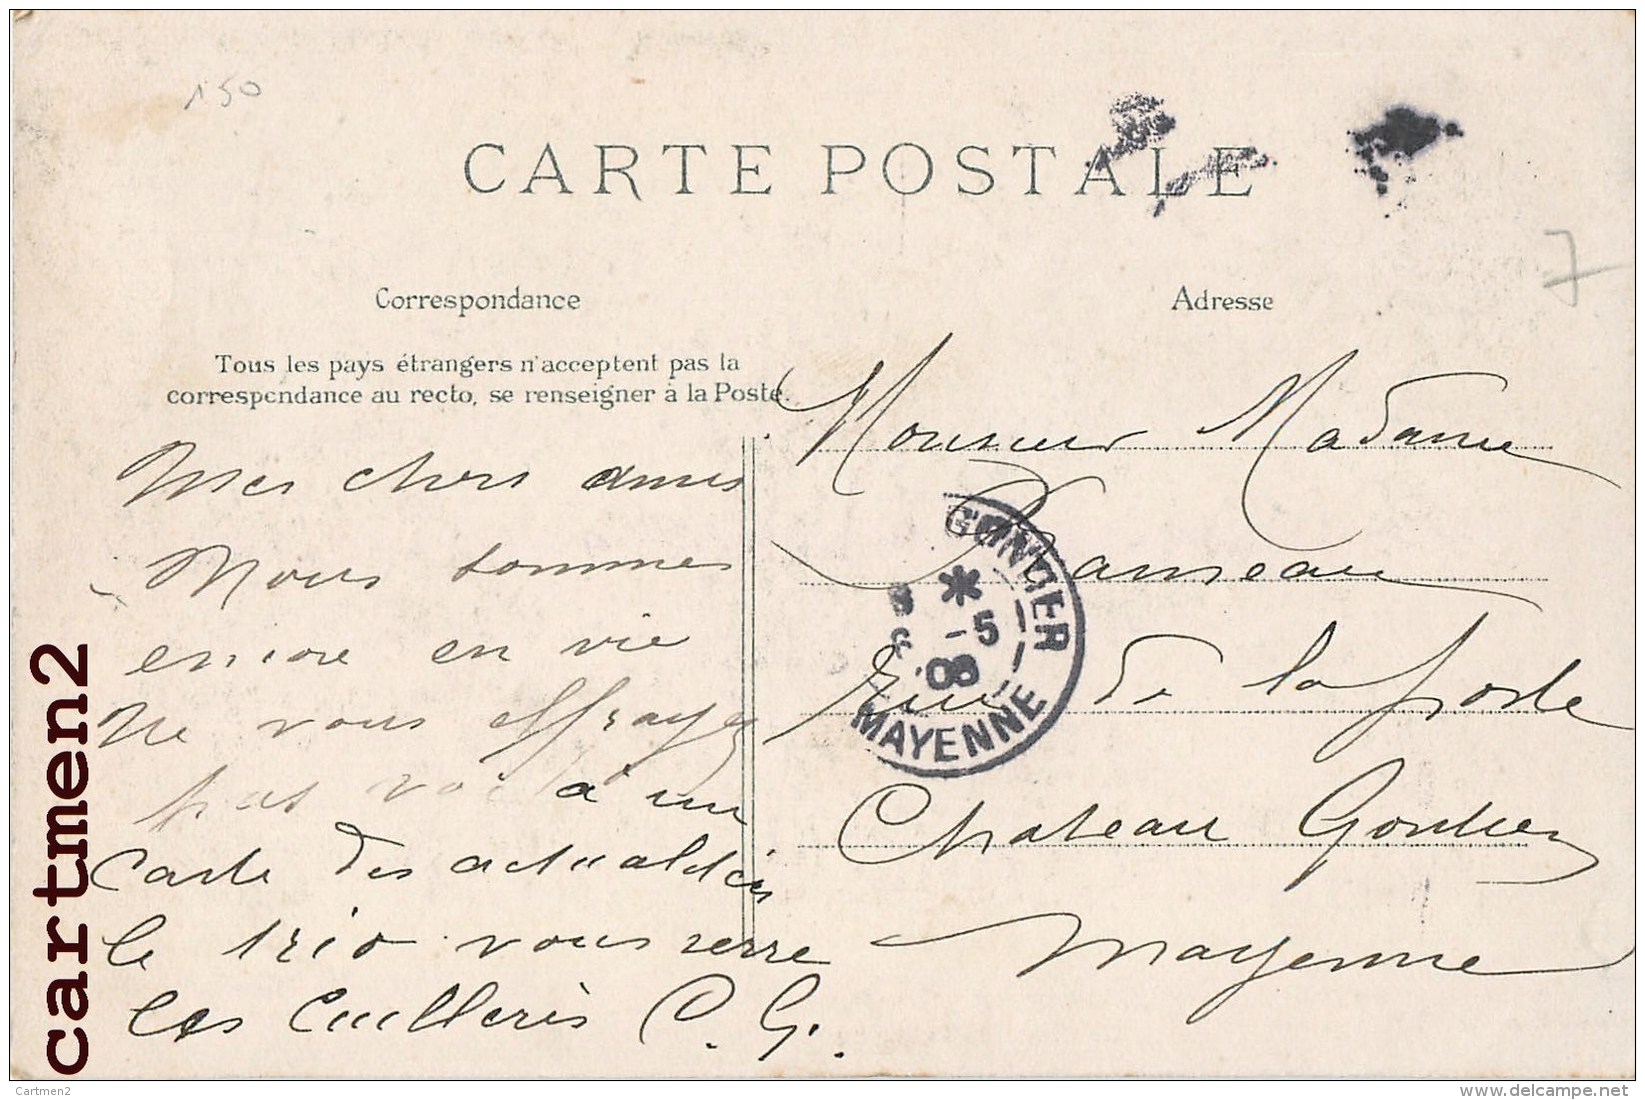 150
CARTE POSTALE
7
Correspondance
Tous les pays étrangers n'acceptent pas la
correspondance au recto, se renseigner à la Poste.
Mes chers amis
Nous sommes
encore en vie
Ne vous effrayez
pas voilà un
Carte des actualités
le trio vous serre
les Cuillerès C. G.
Adresse
Monsieur Madame
Rameau
Rue de la poste
Chateau Gontier
Mayenne
GONTIER
* -5
08
MAYENNE
cartmen2
Cartmen2
www.delcampe.net